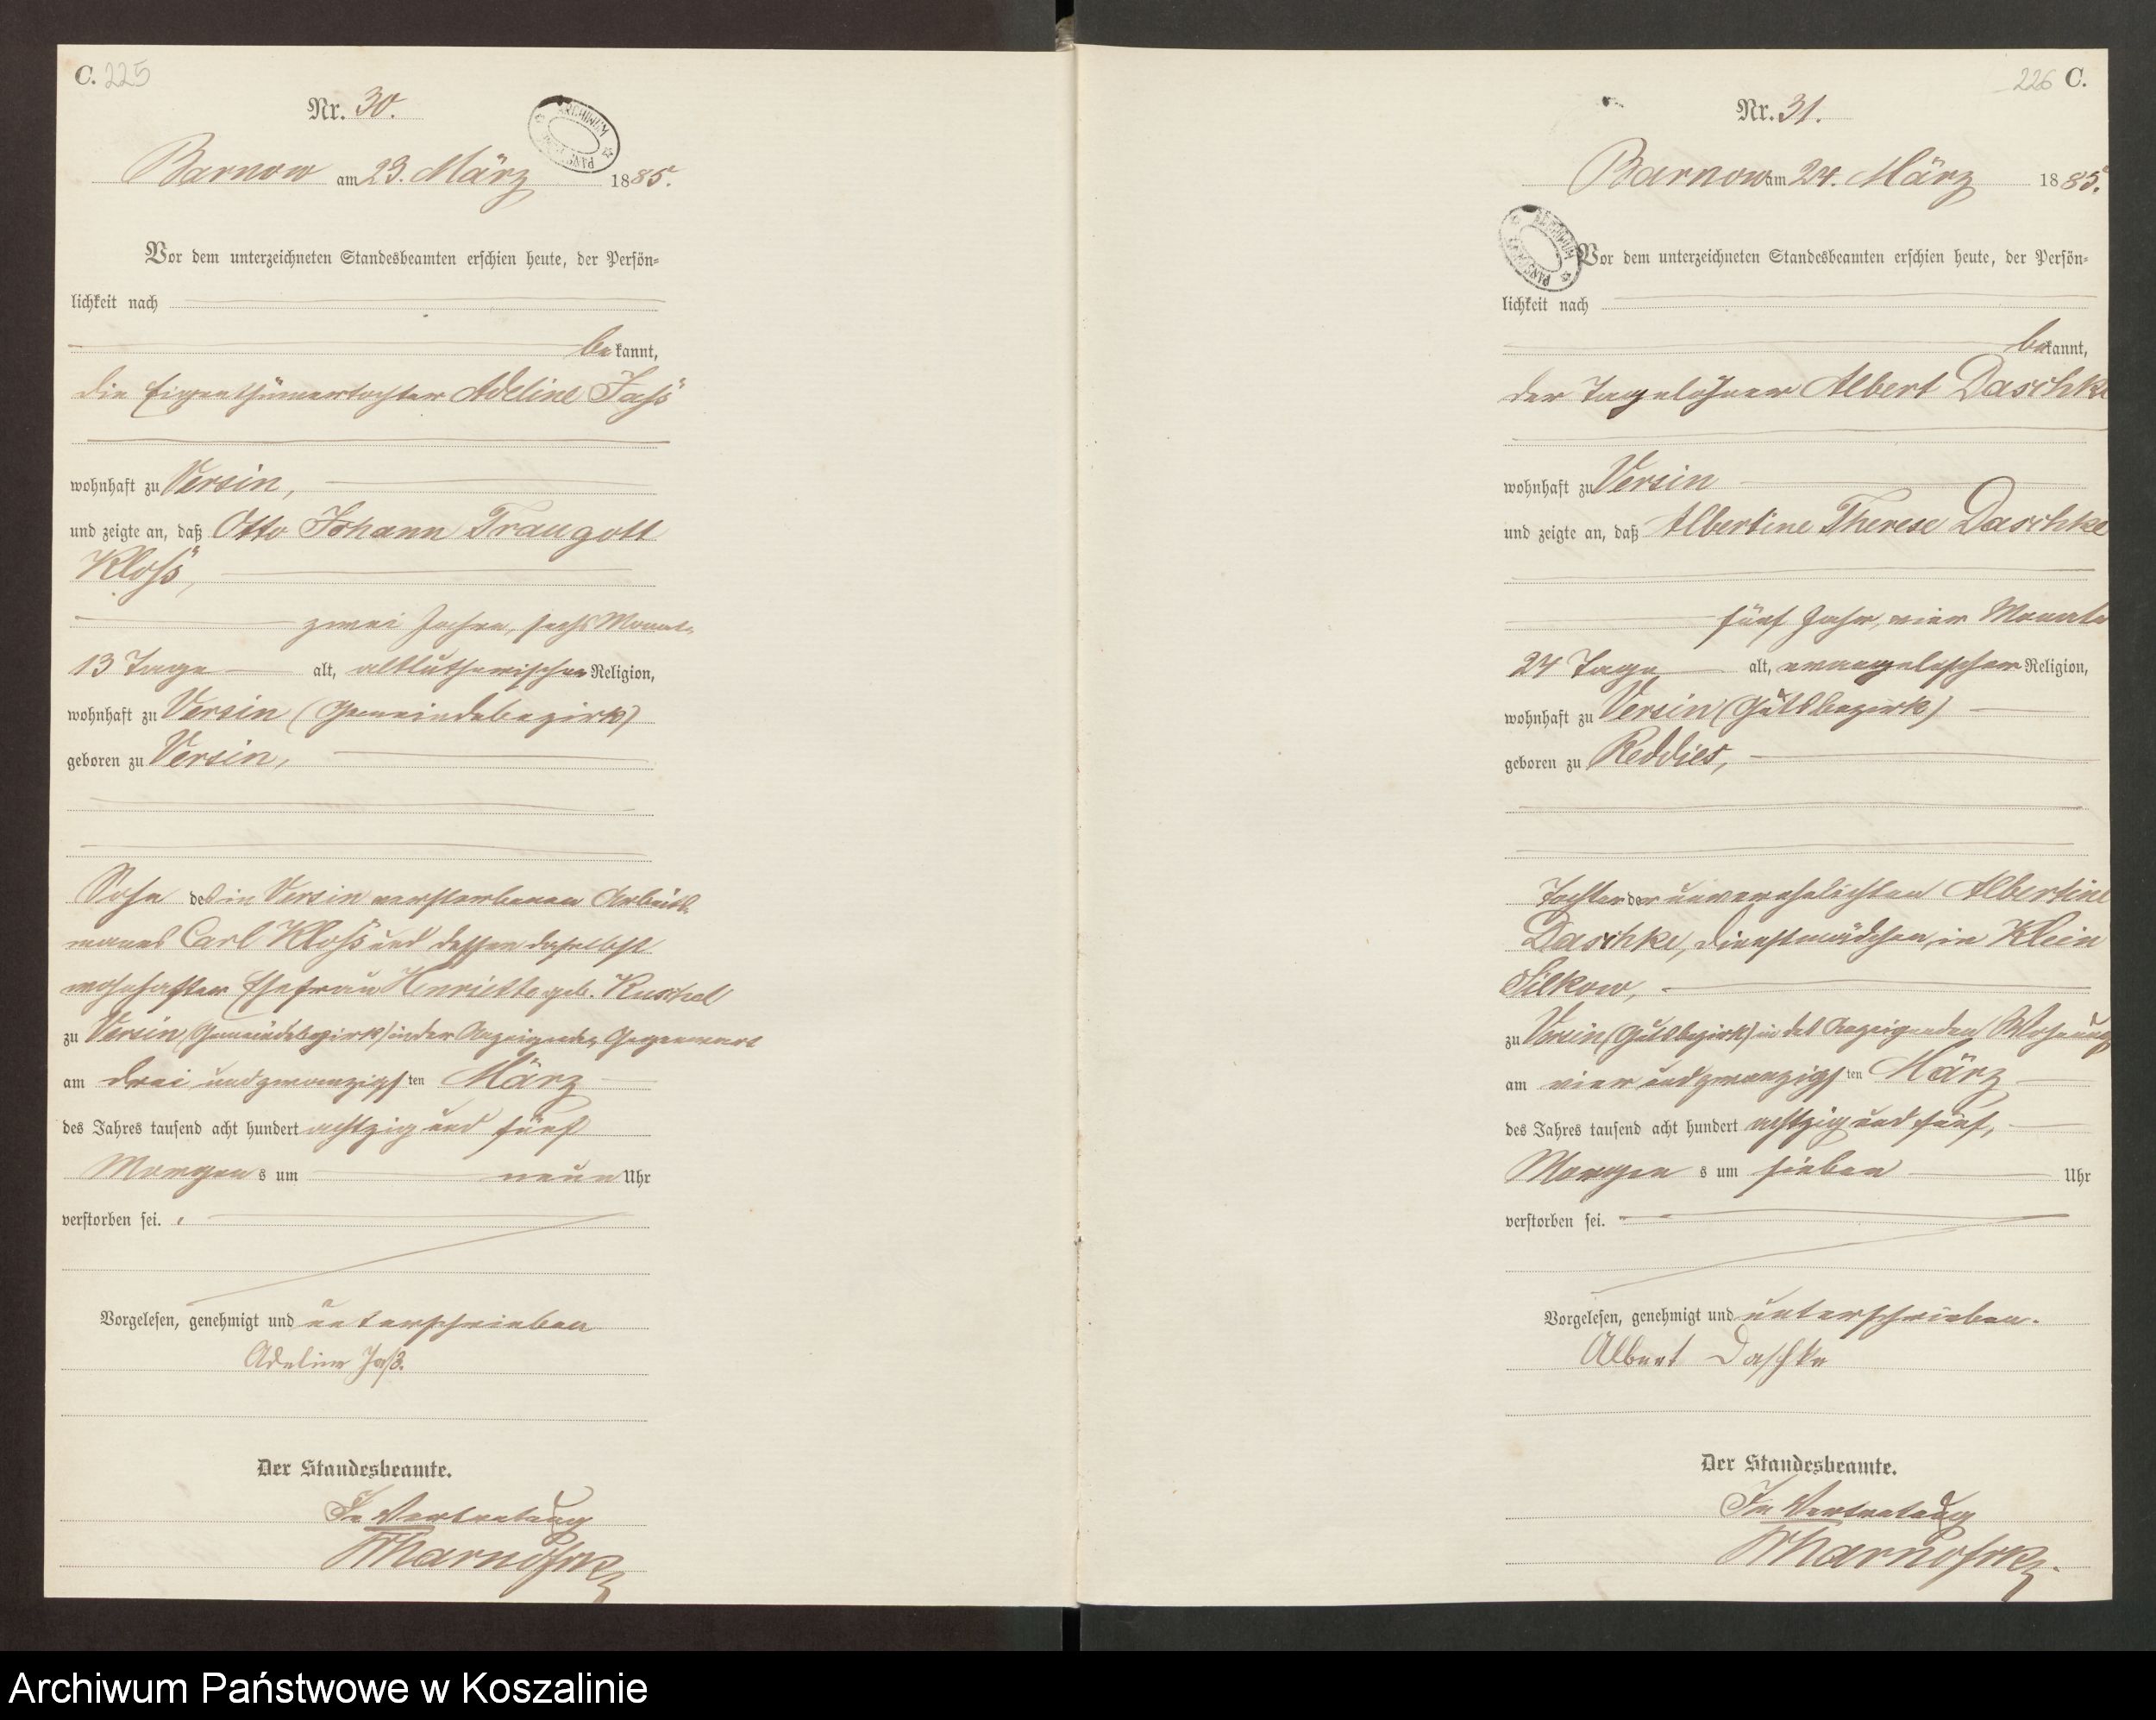 C. 225
Nr. 30.
Barnow am 23. März 1885.
Vor dem unterzeichneten Standesbeamten erschien heute, der Persön-
lichkeit nach
bekannt,
die Eigenthümertochter Adeline Jass
wohnhaft zu Versin,
und zeigte an, daß Otto Johann Traugott
Kloss,
zwei Jahre, sechs Monate
13 Tage alt, altlutherischer Religion,
wohnhaft zu Versin (Gemeindebezirk)
geboren zu Versin,
Sohn des in Versin verstorbenen Arbeits
manns Carl Kloss und dessen daselbst
wohnhafter Ehefrau Henriette geb. Kuschel
zu Versin (Gemeindebezirk) in der Anzeigenden Gegenwart
am drei und zwanzigsten März
des Jahres tausend acht hundert achtzig und fünf
Morgens um neun Uhr
verstorben sei.
Vorgelesen, genehmigt und unterschrieben
Adeline Jaß.
Der Standesbeamte.
In Vertretung
226 C.
Nr. 31.
Barnow am 24. März 1885.
Vor dem unterzeichneten Standesbeamten erschien heute, der Persön-
lichkeit nach
bekannt,
der Tagelöhner Albert Daschke
wohnhaft zu Versin
und zeigte an, daß Albertine Therese Daschke
fünf Jahr, vier Monate
24 Tage alt, evangelischer Religion,
wohnhaft zu Versin (Gutsbezirk)
geboren zu Reddies,
Tochter der unverehelichten Albertine
Daschke, Dienstmädchen, in Klein
Silkow,
zu Versin (Gutsbezirk) in des Anzeigenden Wohnung
am vier und zwanzigsten März
des Jahres tausend acht hundert achtzig und fünf,
Morgens um sieben Uhr
verstorben sei.
Vorgelesen, genehmigt und unterschrieben.
Albert Daschke
Der Standesbeamte.
In Vertretung
Archiwum Państwowe w Koszalinie